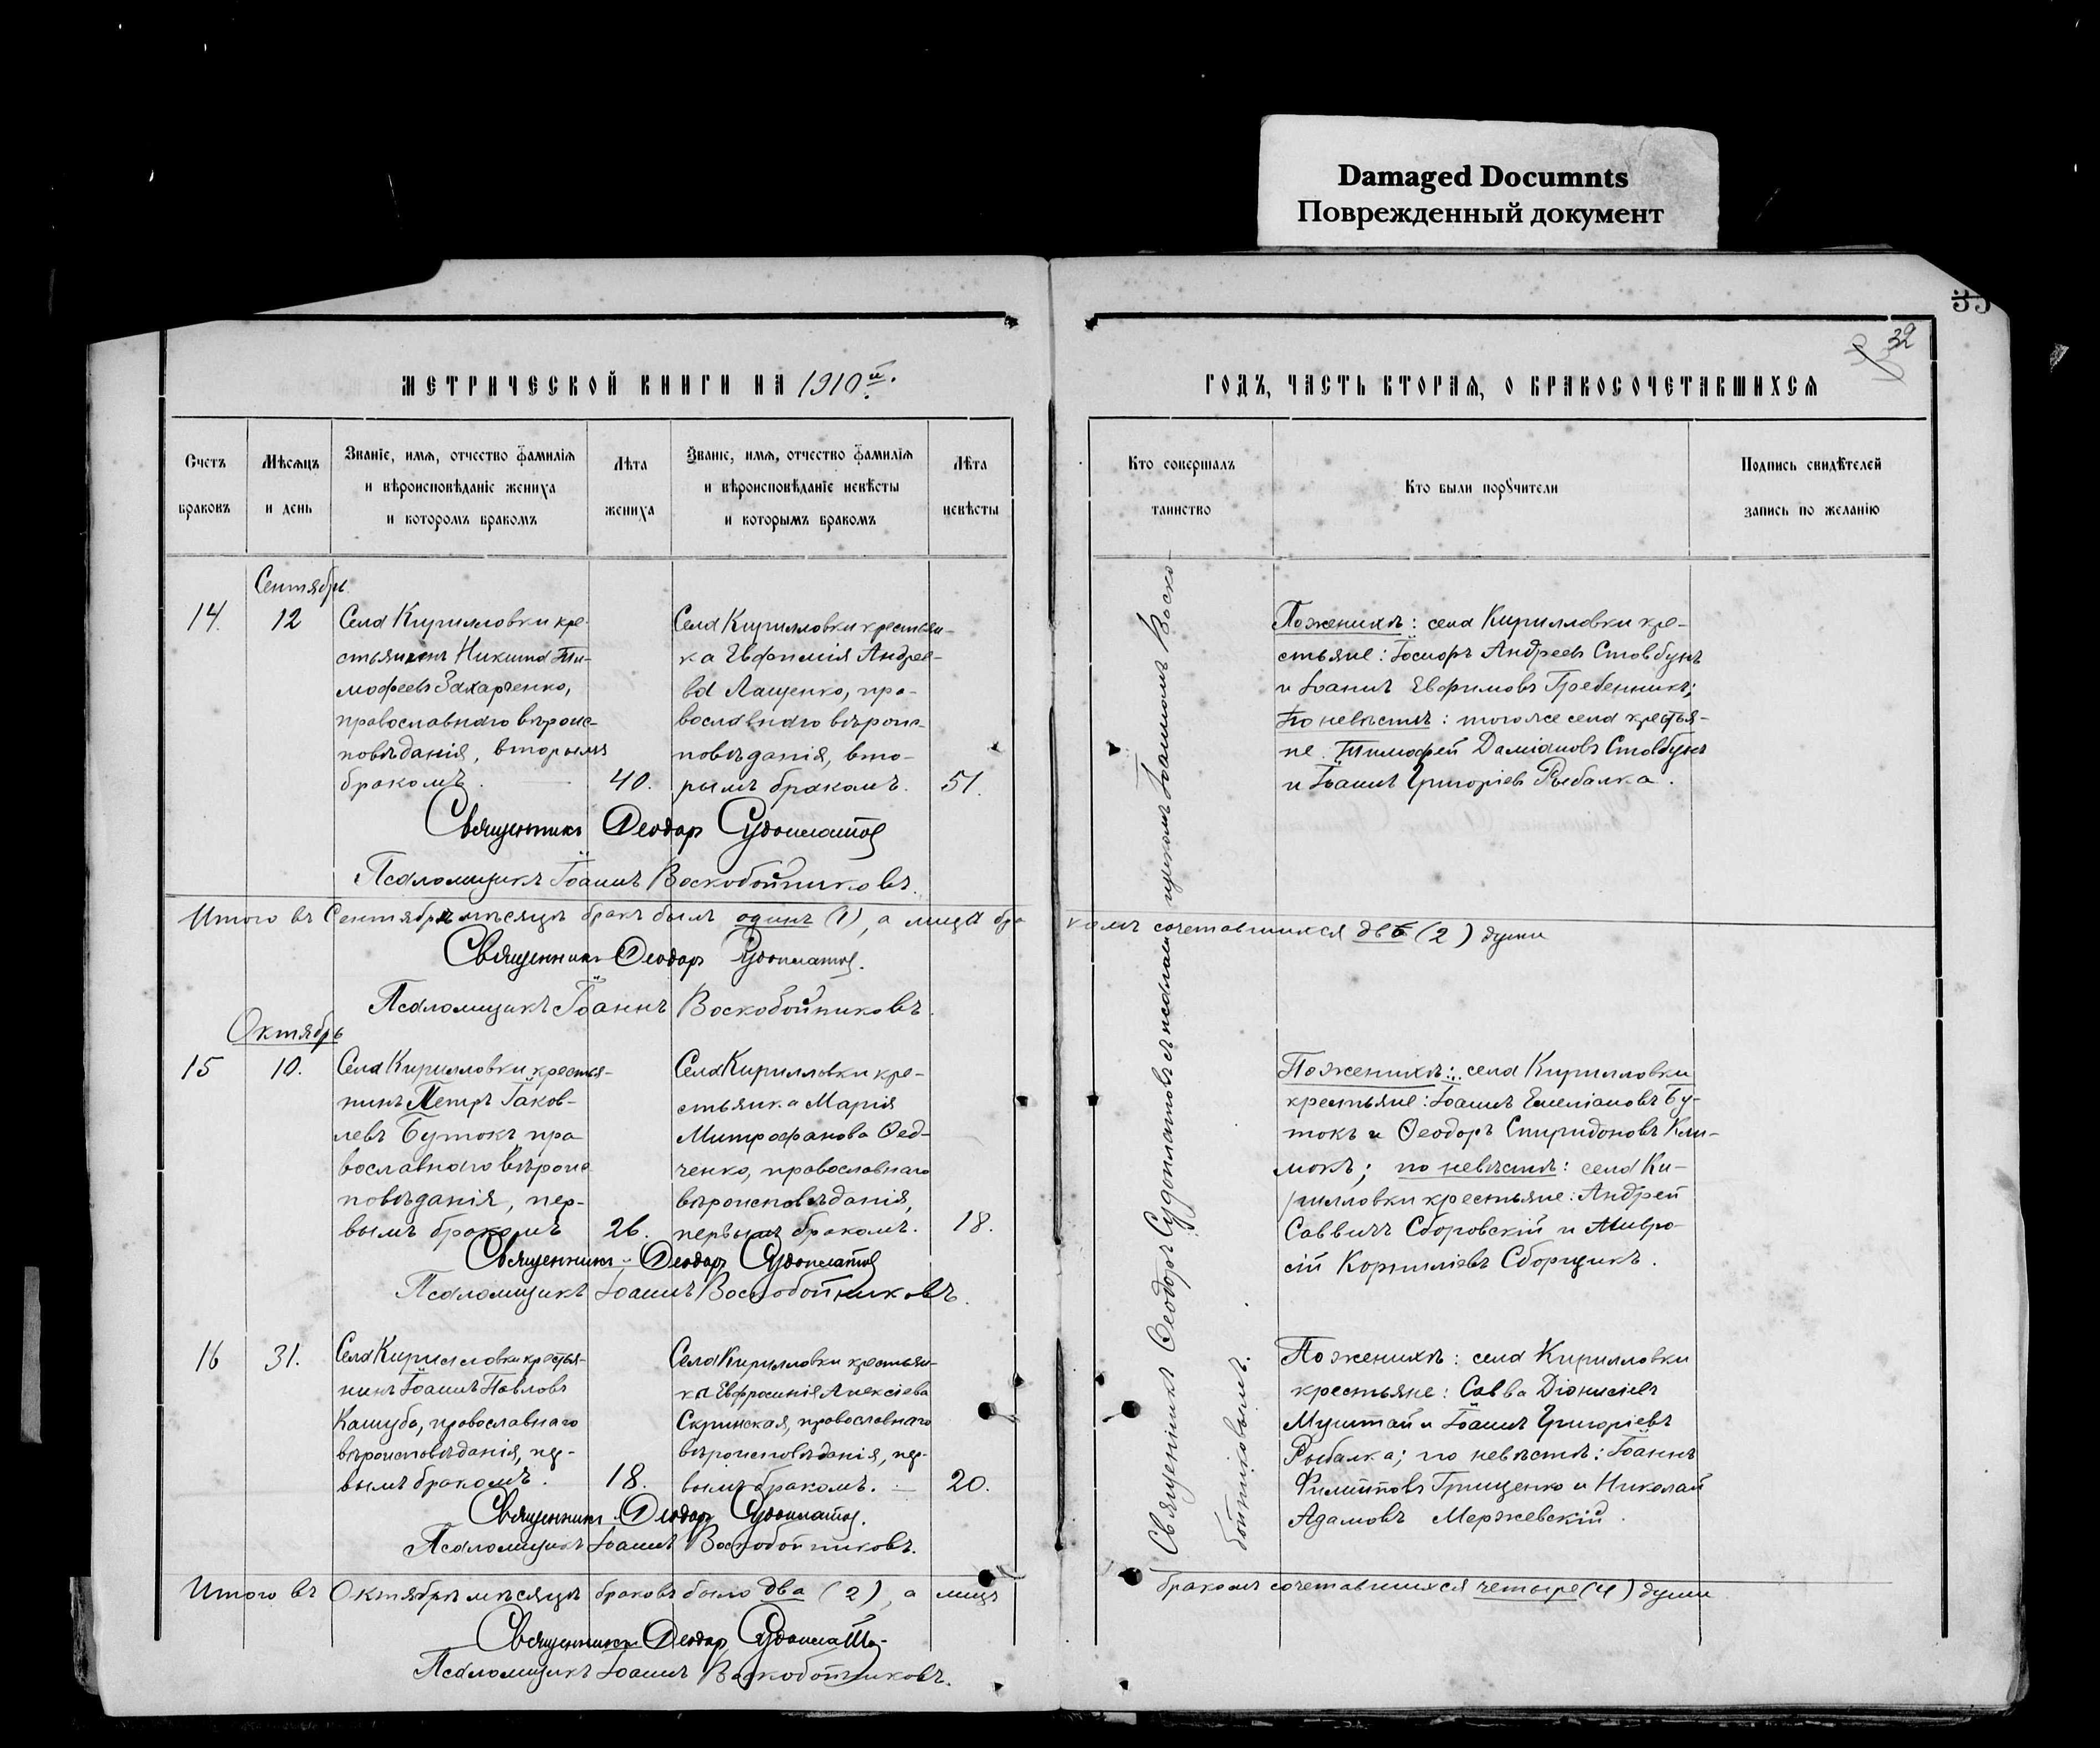 Damaged Documnts
Поврежденный документ
35
32
МЕТРИЧЕСКОЙ КНИГИ НА 1910й.
ГОДЪ, ЧАСТЬ ВТОРАЯ, О БРАКОСОЧЕТАВШИХСЯ
Счетъ
браковъ
Мѣсяцъ
и день
Званіе, имя, отчество фамилія
и вѣроисповѣданіе жениха
и которомъ бракомъ
Лѣта
жениха
Званіе, имя, отчество фамилія
и вѣроисповѣданіе невѣсты
и которымъ бракомъ
Лѣта
невѣсты
Кто совершалъ
таинство
Кто были поручители
Подпись свидѣтелей
запись по желанію
Сентябрь
14.
12
Села Кирилловки кре-
стьянинъ Никита Ти-
мофеевъ Захарченко,
православнаго вѣроис-
повѣданія, вторымъ
бракомъ.
40.
Села Кирилловки крестьян-
ка Евфимія Андрее-
ва Лащенко, пра-
вославнаго вѣроис-
повѣданія, вто-
рымъ бракомъ.
51.
Священникъ Ѳеодоръ Судоплатовъ
Псаломщикъ Іоаннъ Воскобойниковъ.
По женихѣ: села Кирилловки кре-
стьяне: Андреевъ Стовбунъ
и Іоаннъ Евфимовъ Гребенникъ;
по невѣстѣ: того же села крестья-
не: Тимофей Даміановъ Стовбунъ
и Іоаннъ Григоріевъ Рыбалка.
Итого въ Сентябрѣ мѣсяцѣ бракъ былъ одинъ (1), а лица бра
комъ сочетавшихся двѣ (2) души
Священникъ Ѳеодоръ Судоплатовъ.
Псаломщикъ Іоаннъ Воскобойниковъ.
Октябрь
15
10.
Села Кирилловки крестья-
нинъ Петръ Іаков-
левъ Бутокъ, пра
вославнаго вѣроис
повѣданія, пер-
вымъ бракомъ
26.
Села Кирилловки кре-
стьянка Марія
Митрофанова Ѳед-
ченко, православнаго
вѣроисповѣданія,
первымъ бракомъ.
18.
Священникъ Ѳеодоръ Судоплатовъ
Псаломщикъ Іоаннъ Воскобойниковъ.
По женихѣ: села Кирилловки
крестьяне: Іоаннъ Емеліановъ Бу-
токъ и Ѳеодоръ Спиридоновъ Кли-
мокъ; по невѣстѣ: села Ки-
рилловки крестьяне: Андрей
Саввичъ Сборовскій и Амвро-
сій Корниліевъ Сборщикъ.
16
31.
Села Кирилловки крестья-
нинъ Іоаннъ Павловъ
Кашуба, православнаго
вѣроисповѣданія, пер-
вымъ бракомъ.
18.
Села Кирилловки крестьян-
ка Евфросинія Алексіева
Скринская, православнаго
вѣроисповѣданія, пер-
вымъ бракомъ.
20.
Священникъ Ѳеодоръ Судоплатовъ.
Псаломщикъ Іоаннъ Воскобойниковъ.
По женихѣ: села Кирилловки
крестьяне: Савва Діонисіевъ
Муштай и Іоаннъ Григоріевъ
Рыбалка; по невѣстѣ: Іоаннъ
Филипповъ Грищенко и Николай
Адамовъ Мержевскій.
Священникъ Ѳеодоръ Судоплатовъ съ псаломщикомъ Іоанномъ Воско
бойниковымъ.
Итого въ Октябрѣ мѣсяцѣ браковъ было два (2), а лицъ
бракомъ сочетавшихся четыре (4) души
Священникъ Ѳеодоръ Судоплатовъ
Псаломщикъ Іоаннъ Воскобойниковъ.